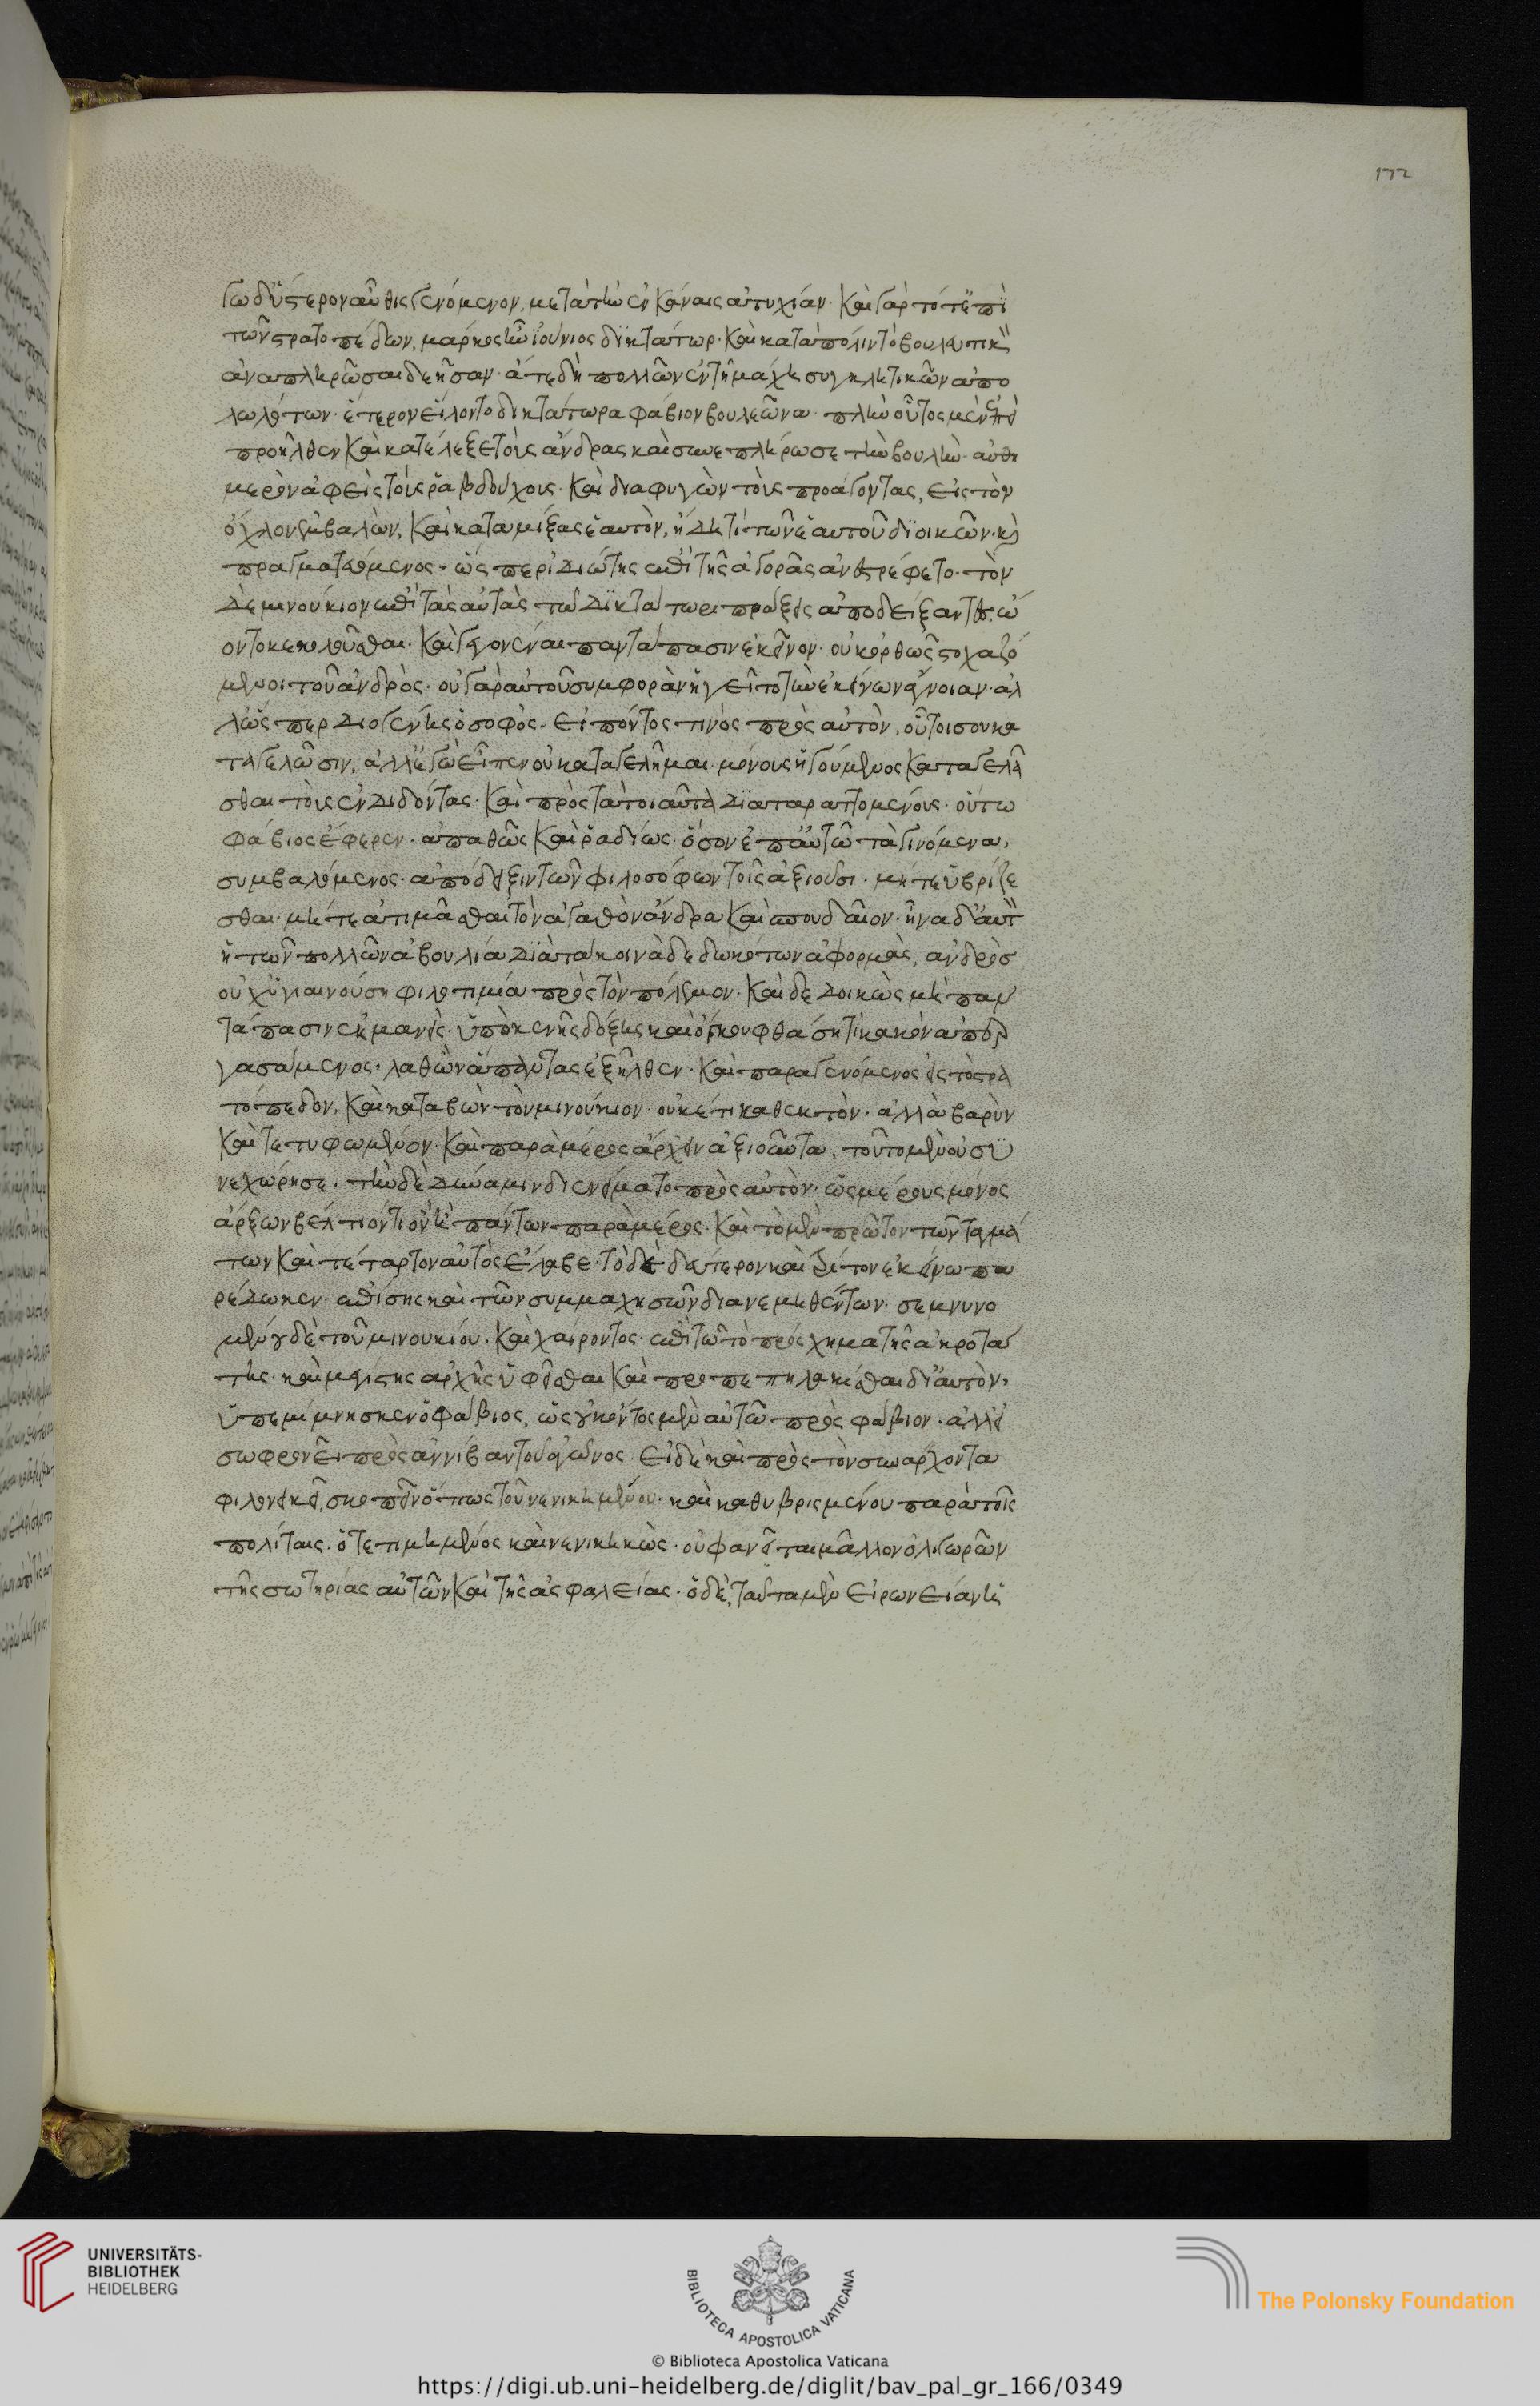 172
γω δεύτερον αὖθις γενόμενον, μετὰ τὴν ἐν Κάναις ἀτυχίαν. Καὶ γὰρ τότ' ἐπὶ
τῶν στρατοπέδων, μάρκος ἦν ἰούνιος δικτάτωρ. Καὶ κατὰ πόλιν τὸ βουλευτικὸν
ἀναπληρῶσαι δεῆσαν. ἅτε δὴ πολλῶν ἐν τῇ μάχη συγκλητικῶν ἀπο
λωλότων. ἕτερον εἵλοντο δικτάτωρα φάβιον βουτεῶνα. πλὴν οὗτος μὲν ἐπεὶ
προῆλθεν Καὶ κατέλεξε τοὺς ἄνδρας καὶ συνεπλήρωσε τὴν βουλὴν. αὐθη
μερὸν ἀφεὶς τοὺς ῥαβδούχους. Καὶ διαφυγὼν τοὺς προάγοντας, εἰς τὸν
ὄχλον ἐμβαλὼν, Καὶ καταμίξας ἑαυτὸν, ἤδη τί τῶν ἑαυτοῦ διοικῶν. κὶ
πραγματευόμενος. ὥσπερ ἰδιώτης ἐπὶ τῆς ἀγορᾶς ἀνεστρέφετο. τὸν
δὲ μινούκιον ἐπὶ τὰς αὐτὰς τῶ δικτάτωρι πράξεις ἀποδείξαντες. ὤ
οντο κεκολοῦσθαι. Καὶ γεγονέναι παντάπασιν ἐκεῖνον. οὐκ ὀρθῶς στοχαζό
μενοι τοῦ ἀνδρὸς. οὐ γὰρ αὐτοῦ συμφορὰν ἡγεῖτο τὴν ἐκείνων ἄγνοιαν. ἀλ
λ' ὥσπερ Διογένης ὁ σοφὸς. εἰπόντος τινὸς πρὸς αὐτὸν, οὗτοι σου κα
ταγελῶσιν, ἀλλ' ἐγὼ εἶπεν οὐ καταγελῶμαι. μόνους ἡγούμενος καταγελᾶ
σθαι τοὺς ἐνδιδόντας. Καὶ πρὸς τὰ τοιαῦτα διαταραττομένους. οὕτω
φάβιος ἔφερεν. ἀπαθῶς Καὶ ῥαδίως. ὅσον ἐπ' αὐτῶ τὰ γινόμενα,
συμβαλόμενος. ἀπόδειξιν τῶν φιλοσόφων τοῖς ἀξιοῦσι. μήτε ὑβρίζε
σθαι. μήτε ἀτιμᾶσθαι τὸν ἀγαθὸν ἄνδρα Καὶ σπουδαῖον. ἠνία δ' αὐτὸν
ἡ τῶν πολλῶν ἀβουλία διὰ τὰ κοινὰ δεδωκότων ἀφορμὰς, ἀνδρὸς
οὐχ ὑγιαινούση φιλοτιμία πρὸς τὸν πόλεμον. Καὶ δεδοικὼς μὴ παν
τάπασιν ἐκμανεὶς. ὑπὸ κενῆς δόξης καὶ ὄγκου φθάση τὶ κακὸν ἀπερ
γασάμενος. λαθὼν ἅπαντας ἐξῆλθεν. Καὶ παραγενόμενος εἰς τὸ στρα
τόπεδον, Καὶ καταβὼν τὸν μινούκιον. οὐκέτι καθεκτὸν. ἀλλὰ βαρὺν
Καὶ τετυφωμένον. Καὶ παρὰ μέρος ἄρχειν ἀξιοῦντα. τοῦτο μὲν οὐ συ
νεχώρησε. τὴν δὲ δύναμιν διενείματο πρὸς αὐτὸν. ὡς μέρους μόνος
ἄρξων βέλτιον τι ὂν ἢ πάντων παρὰ μέρος. Καὶ τὸ μὲν πρῶτον τῶν ταγμά
των Καὶ τέταρτον αὐτὸς ἔλαβε. τὸ δὲ δεύτερον καὶ τρίτον ἐκείνω πα
ρέδωκεν. ἐπίσης καὶ τῶν συμμαχικῶν διανεμηθέντων. σεμνυνο
μένου δὲ τοῦ μινουκίου. Καὶ χαίροντος. ἐπὶ τῶ τὸ πρόσχημα τῆς ἀκροτά
της. καὶ μεγίστης ἀρχῆς ὑφεῖσθαι Καὶ προπεπηλακίσθαι δι' αὐτὸν.
ὑπεμίμνησκεν ὁ φάβιος, ὡς οὐκ ὄντος μὲν αὐτῶ πρὸς φάβιον. ἀλλ' εἰ
σωφρονεῖ πρὸς ἀννίβαν τοῦ ἀγῶνος. εἰ δὲ καὶ πρὸς τὸν συνάρχοντα
φιλονεικεῖ, σκοπεῖν ὅπως τοῦ νενικημένου. καὶ καθυβρισμένου παρὰ τοῖς
πολίταις. ὁ τετιμημένος καὶ νενικηκὼς. οὐ φανεῖται μᾶλλον ὀλιγωρῶν
τῆς σωτηρίας αὐτῶν Καὶ τῆς ἀσφαλείας. ὁ δὲ, ταῦτα μὲν εἰρωνείαν ἡ
UNIVERSITÄTS-
BIBLIOTHEK
HEIDELBERG
BIBLIOTECA APOSTOLICA VATICANA
The Polonsky Foundation
© Biblioteca Apostolica Vaticana
https://digi.ub.uni-heidelberg.de/diglit/bav_pal_gr_166/0349